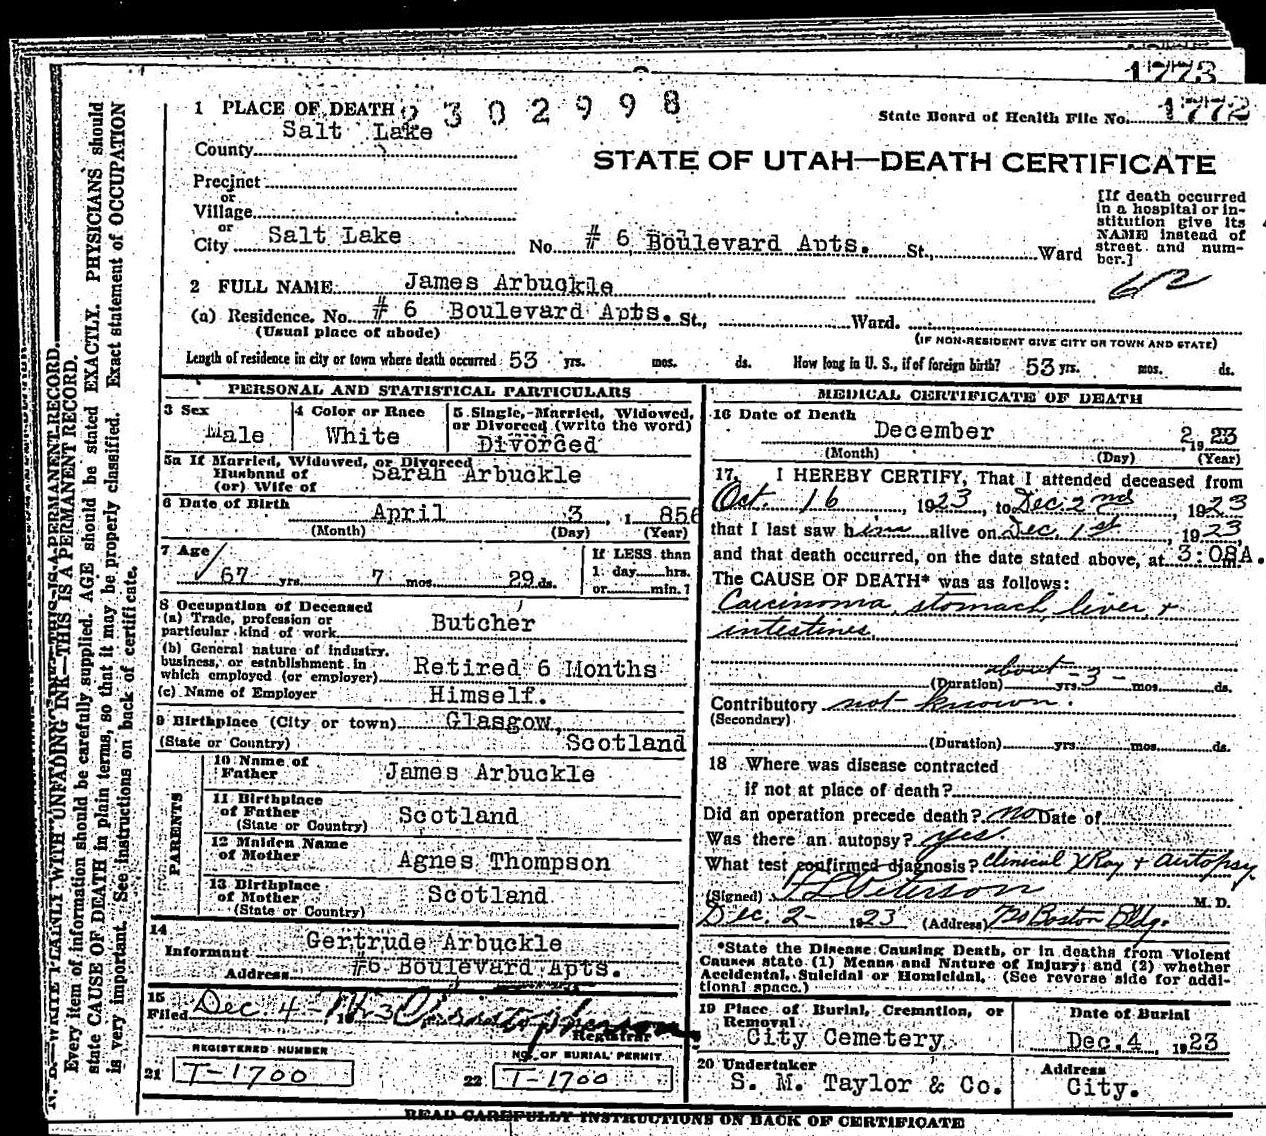 1773
1 PLACE OF DEATH 2302998
State Board of Health File No. 1772
County Salt Lake
STATE OF UTAH—DEATH CERTIFICATE
Precinct
or
Village
or
City Salt Lake No. # 6 Boulevard Apts. St., Ward
[If death occurred
in a hospital or in-
stitution give its
NAME instead of
street and num-
ber.]
2 FULL NAME James Arbuckle
(a) Residence. No. # 6 Boulevard Apts. St., Ward.
(Usual place of abode) (IF NON-RESIDENT GIVE CITY OR TOWN AND STATE)
Length of residence in city or town where death occurred 53 yrs. mos. ds. How long in U. S., if of foreign birth? 53 yrs. mos. ds.
PERSONAL AND STATISTICAL PARTICULARS
3 Sex
Male
4 Color or Race
White
5 Single, Married, Widowed,
or Divorced (write the word)
Divorced
5a If Married, Widowed, or Divorced
Husband of Sarah Arbuckle
(or) Wife of
6 Date of Birth April 3, 1856
(Month) (Day) (Year)
7 Age
67 yrs. 7 mos. 29 ds.
If LESS than
1 day hrs.
or min.]
8 Occupation of Deceased
(a) Trade, profession or
particular kind of work Butcher
(b) General nature of industry,
business, or establishment in
which employed (or employer) Retired 6 Months
(c) Name of Employer Himself.
9 Birthplace (City or town) Glasgow,
(State or Country) Scotland
PARENTS
10 Name of
Father James Arbuckle
11 Birthplace
of Father Scotland
(State or Country)
12 Maiden Name
of Mother Agnes Thompson
13 Birthplace
of Mother Scotland
(State or Country)
14
Informant Gertrude Arbuckle
Address #6 Boulevard Apts.
15
Filed Dec. 4 - Christopherson
Registrar
REGISTERED NUMBER
21 T-1700
NO. OF BURIAL PERMIT
22 T-1700
MEDICAL CERTIFICATE OF DEATH
16 Date of Death
December 2, 1923
(Month) (Day) (Year)
17. I HEREBY CERTIFY, That I attended deceased from
Oct. 16, 1923, to Dec. 2nd, 1923
that I last saw him alive on Dec. 1st, 1923,
and that death occurred, on the date stated above, at 3:08A. m.
The CAUSE OF DEATH* was as follows:
Carcinoma, stomach, liver, +
intestines.
about
(Duration) yrs. -3- mos. ds.
Contributory not known.
(Secondary)
(Duration) yrs. mos. ds.
18 Where was disease contracted
if not at place of death?
Did an operation precede death? no Date of
Was there an autopsy? yes.
What test confirmed diagnosis? Clinical XRay + autopsy.
(Signed) Peterson M. D.
Dec. 2- 1923 (Address) 720 Boston Bldg.
*State the Disease Causing Death, or in deaths from Violent
Causes state (1) Means and Nature of Injury; and (2) whether
Accidental, Suicidal or Homicidal. (See reverse side for addi-
tional space.)
19 Place of Burial, Cremation, or
Removal.
City Cemetery
Date of Burial
Dec. 4, 1923
20 Undertaker
S. M. Taylor & Co.
Address
City.
READ CAREFULLY INSTRUCTIONS ON BACK OF CERTIFICATE
WRITE PLAINLY WITH UNFADING INK—THIS IS A PERMANENT RECORD.
Every item of information should be carefully supplied. AGE should be stated EXACTLY. PHYSICIANS should
state CAUSE OF DEATH in plain terms, so that it may be properly classified. Exact statement of OCCUPATION
is very important. See instructions on back of certificate.